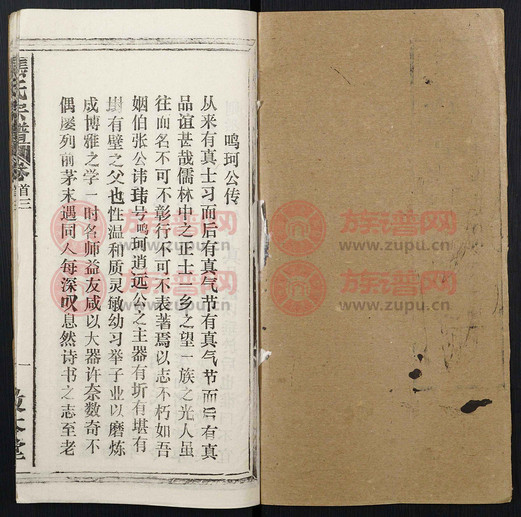 鸣珂公传
从来有真士习而后有真气节有真气节而后有真
品谊甚哉儒林中之正士一乡之望一族之光人虽
往而名不可不彰行不可不表著焉以志不朽如吾
姻伯张公讳玮号鸣珂逍远公之主器有圻有堪有
有壁之父也性温和质灵敏幼习举子业以磨炼
成博雅之学一时名师益友咸以大器许奈数奇不
偶屡列前茅未遇同人每深叹息然诗书之志至老
氏宗谱
卷首三
一
堂
族谱网
www.zupu.cn
族谱网
www.zupu.cn
族谱网
www.zupu.cn
族谱网
www.zupu.cn